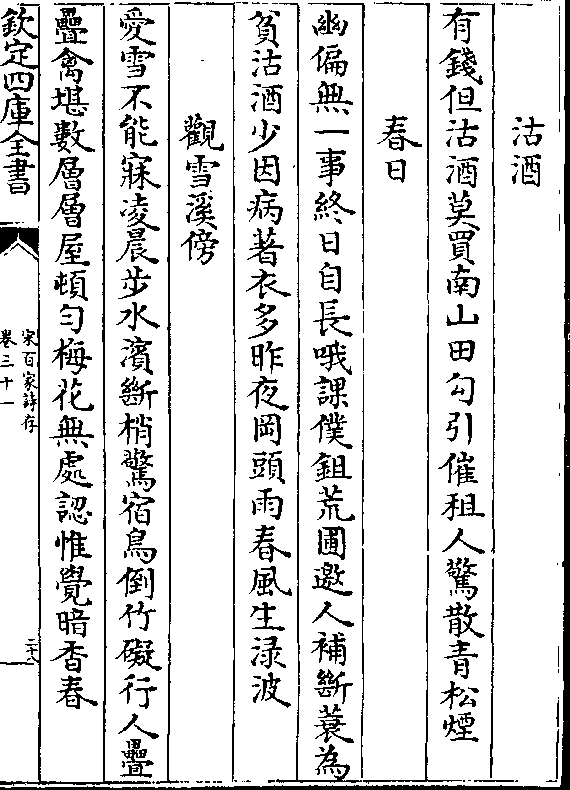 沽酒
有錢但沽酒莫買南山田勾引催租人驚散青松煙
春日
幽偏無一事終日自長哦課僕鉏荒圃邀人補斷蓑為
貧沽酒少因病著衣多昨夜岡頭雨春風生渌波
觀雪溪傍
愛雪不能寐凌晨步水濱斷梢驚宿鳥倒竹礙行人疊
疊禽堪數層層屋頓勻梅花無處認惟覺暗香春
欽定四庫全書
宋百家詩存
卷三十一